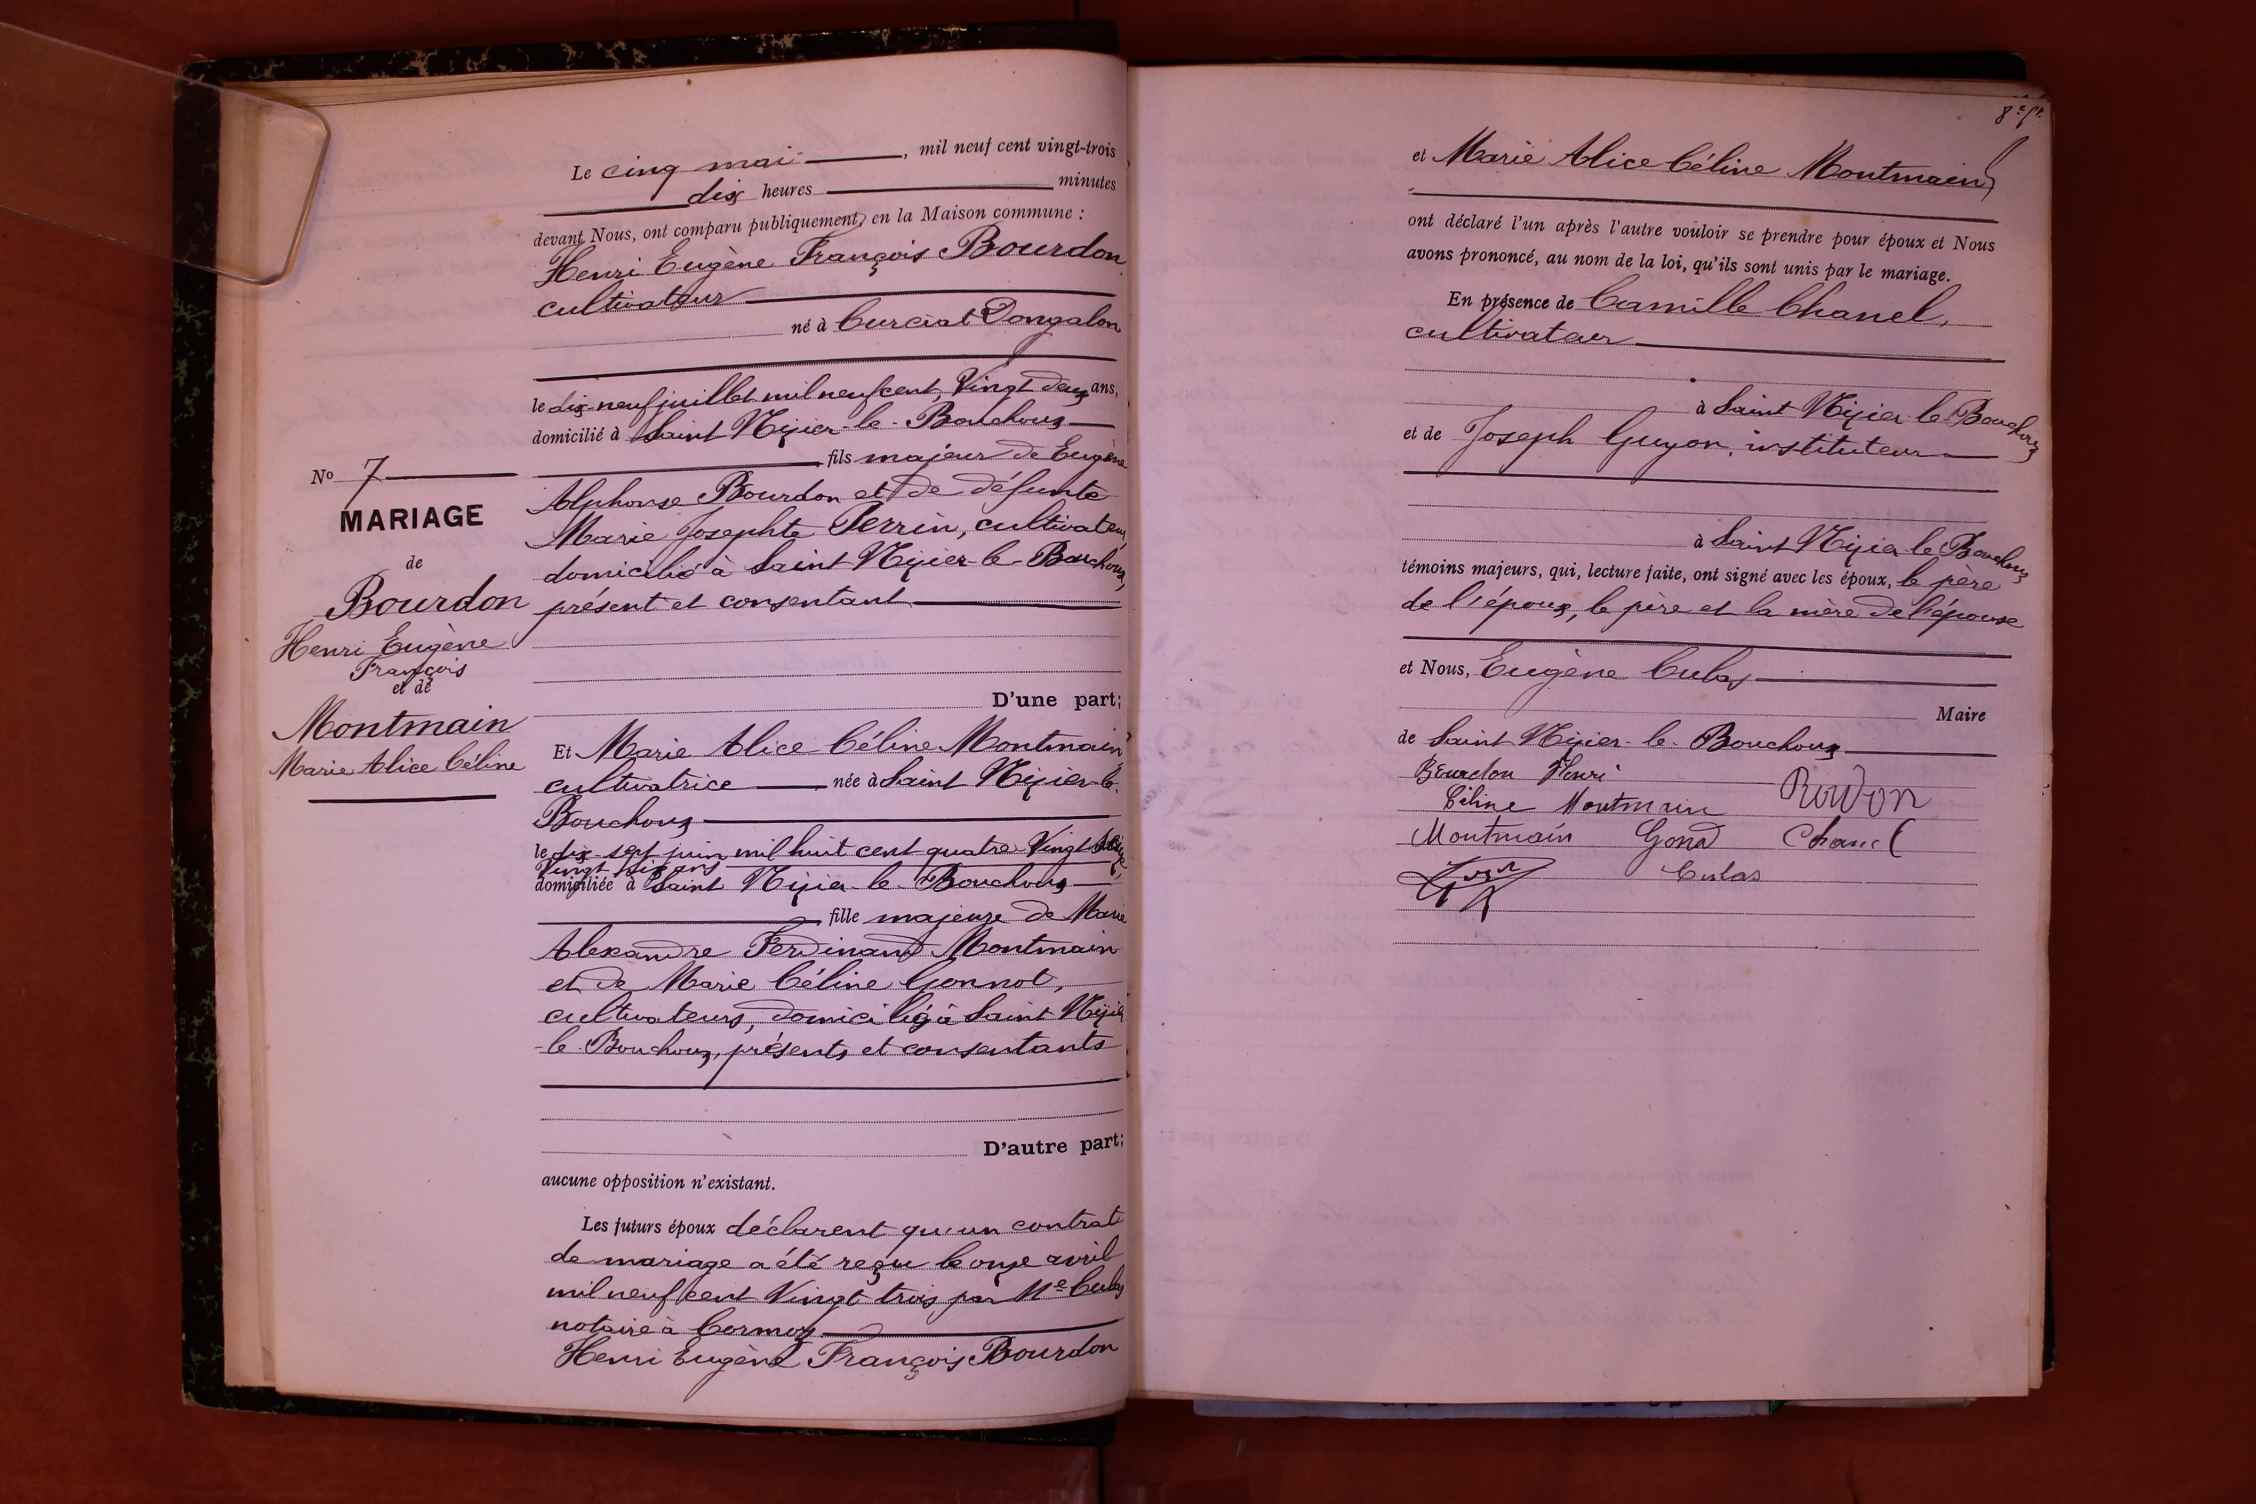 Le cinq mai, mil neuf cent vingt-trois
dix heures minutes
devant Nous, ont comparu publiquement, en la Maison commune :
Henri Eugène François Bourdon
cultivateur
né à Curciat Dongalon
le dix-neuf juillet mil neuf cent, Vingt deux ans,
domicilié à Saint Nizier-le-Bouchoux
fils majeur de Eugène
Alphonse Bourdon et de défunte
Marie Josephte Perrin, cultivateur,
domicilié à Saint Nizier-le-Bouchoux,
présent et consentant
D'une part;
Et Marie Alice Céline Montmain
cultivatrice née à Saint Nizier-le-
Bouchoux
le dix-sept juin mil huit cent quatre Vingt seize,
Vingt six ans
domiciliée à Saint Nizier-le-Bouchoux
fille majeure de Marie
Alexandre Ferdinand Montmain
et de Marie Céline Gonnot,
cultivateurs, domiciliés à Saint Nizier
-le-Bouchoux, présents et consentants
D'autre part;
aucune opposition n'existant.
Les futurs époux déclarent qu'un contrat
de mariage a été reçu le onze avril
mil neuf cent Vingt trois, par Me Culas
notaire à Cormoz
Henri Eugène François Bourdon
No 7
MARIAGE
de
Bourdon
Henri Eugène
François
et de
Montmain
Marie Alice Céline
et Marie Alice Céline Montmain
ont déclaré l'un après l'autre vouloir se prendre pour époux et Nous
avons prononcé, au nom de la loi, qu'ils sont unis par le mariage.
En présence de Camille Chanel,
cultivateur
à Saint Nizier-le-Bouchoux
et de Joseph Guyon, instituteur
à Saint Nizier-le-Bouchoux
témoins majeurs, qui, lecture faite, ont signé avec les époux, le père
de l'époux, le père et la mère de l'épouse
et Nous, Eugène Culas
Maire
de Saint Nizier-le-Bouchoux
Bourdon Henri
Céline Montmain
Montmain Chanel
Culas